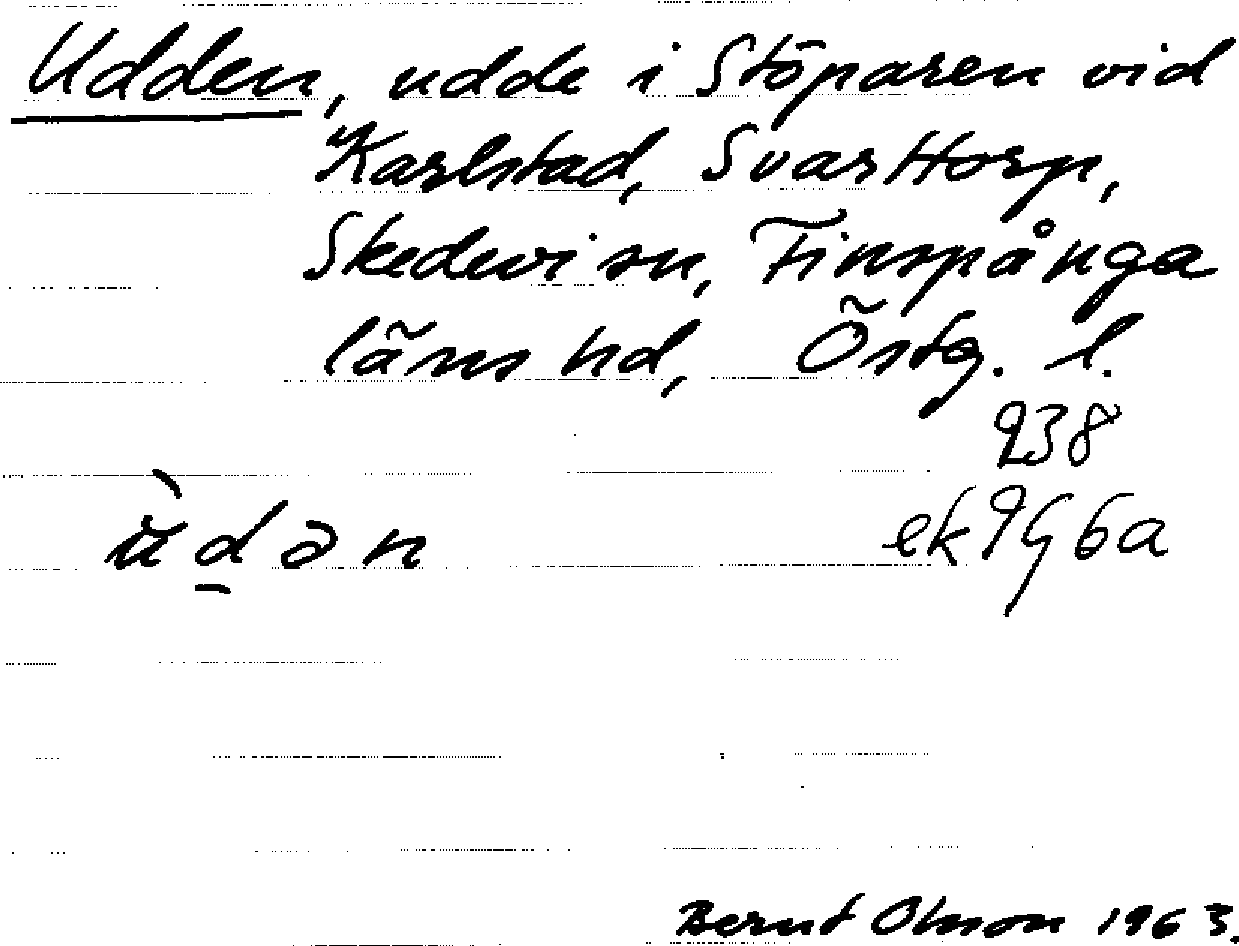 Udden, udde i Stöparen vid
Karlstad, Svarttorp,
Skedevi sn, Finspånga
läns hd, Östg. l.
938
ùdən ek 9G 6a
Bernt Olson 1963.